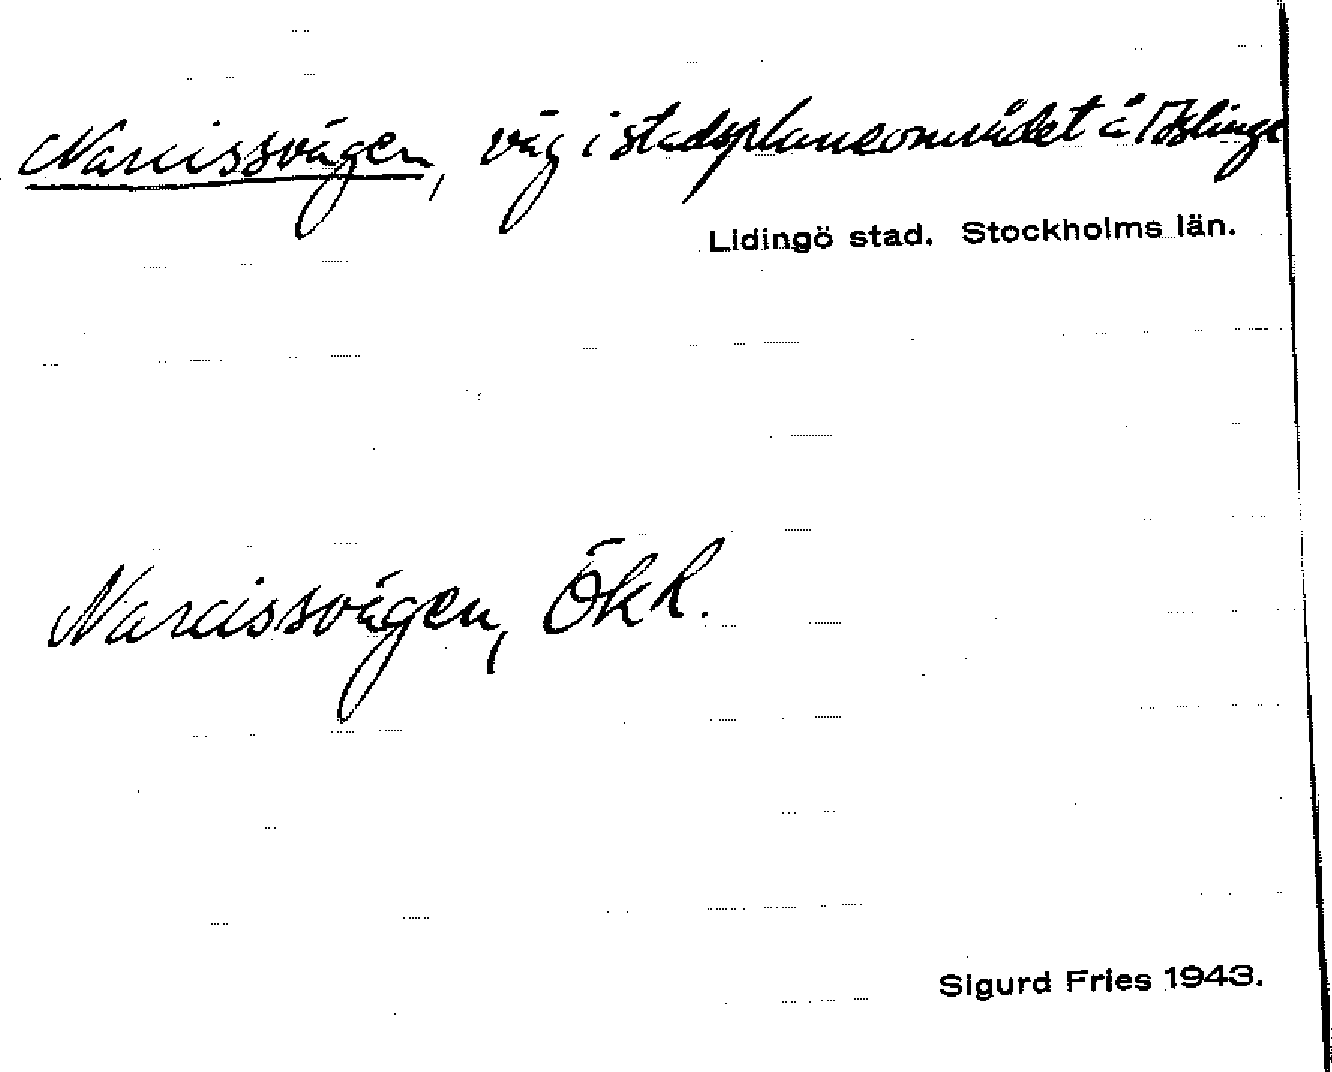 Narcissvägen, väg i stadsplaneområdet å Islinge
Lidingö stad. Stockholms län.
Narcissvägen, ÖkR.
Sigurd Fries 1943.